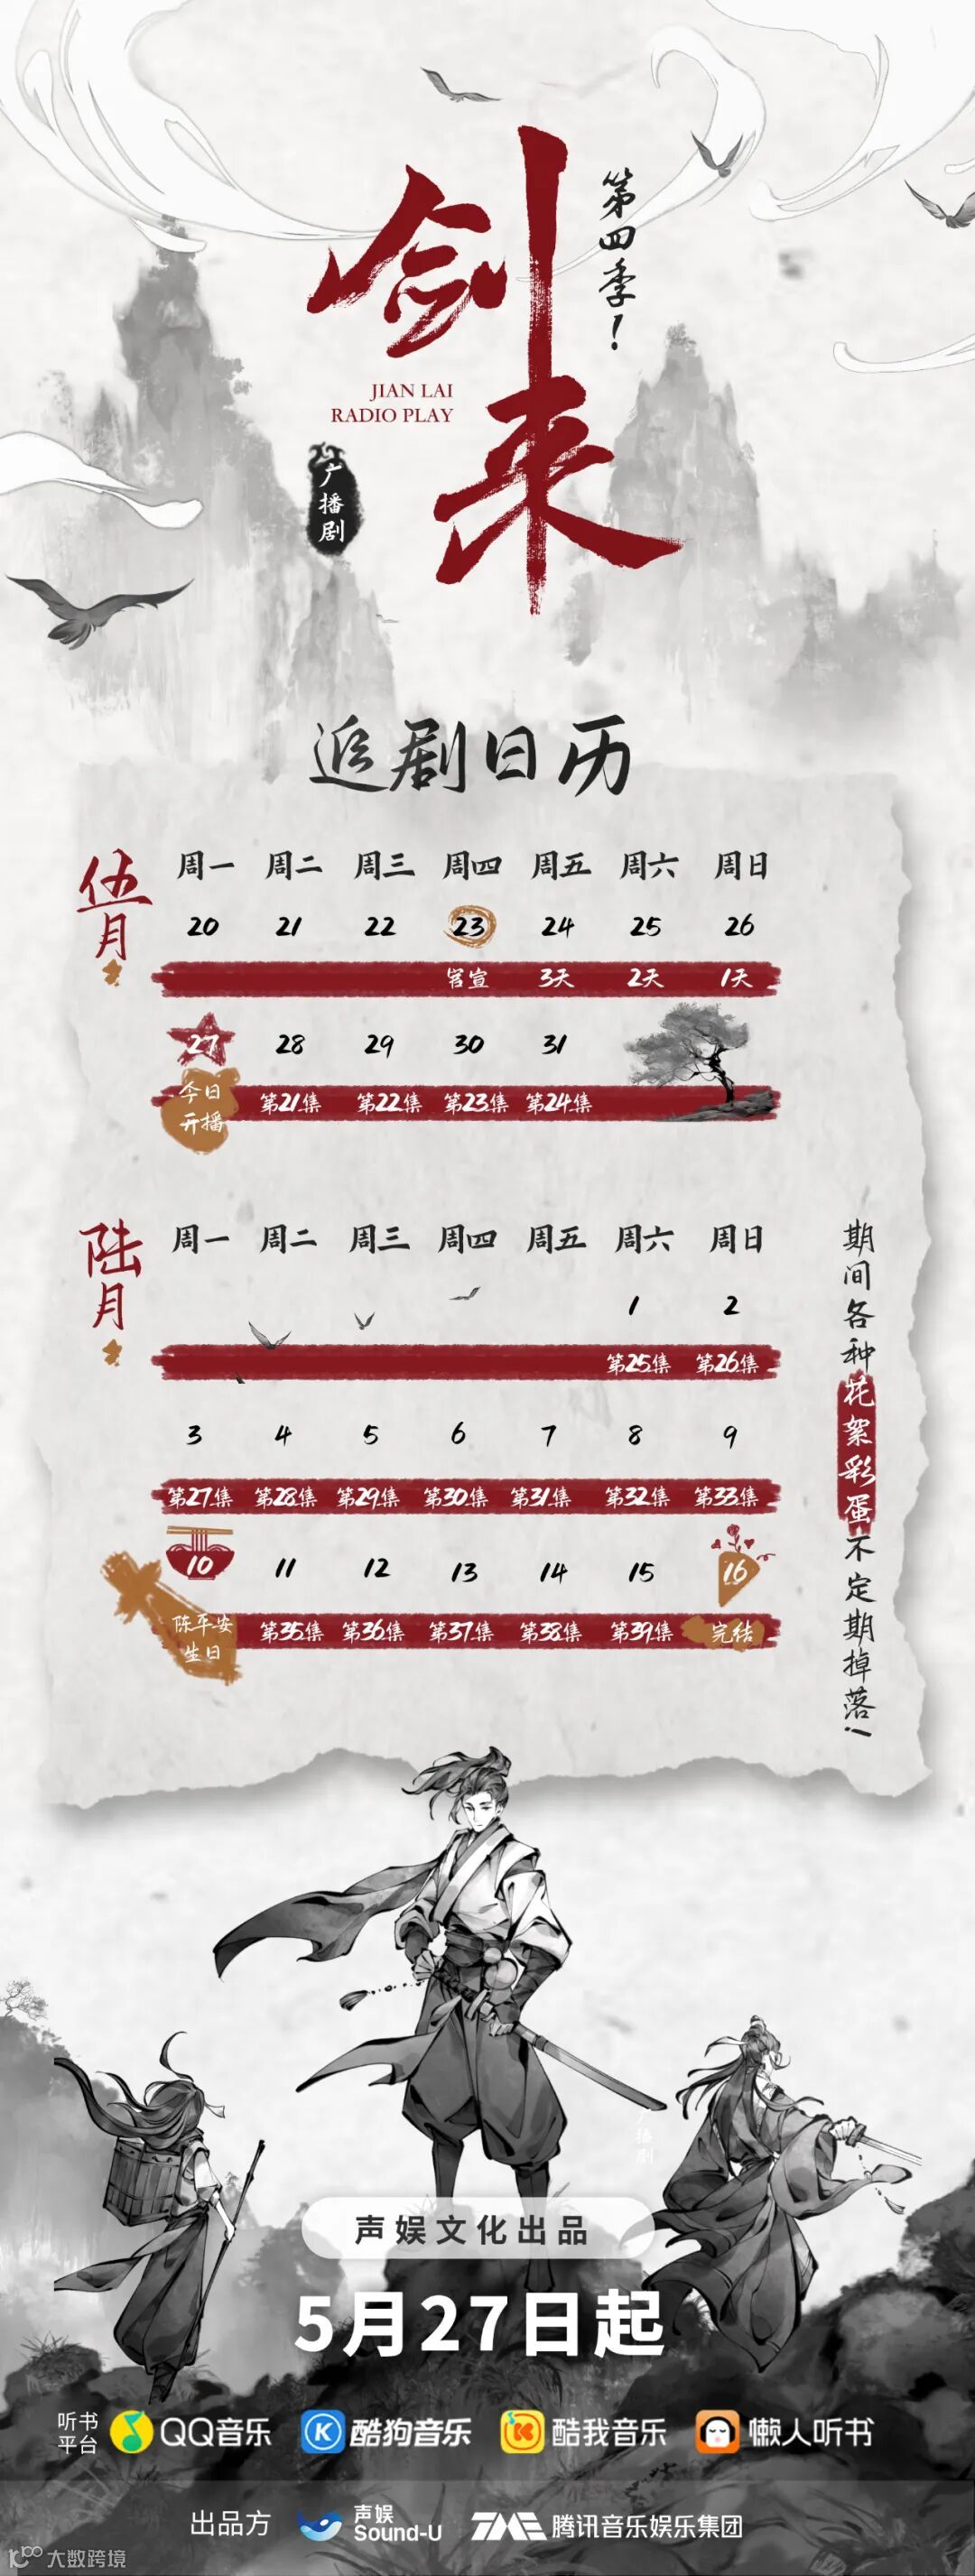 剑来
第四季！
JIAN LAI
RADIO PLAY
广播剧
追剧日历
伍月
周一 周二 周三 周四 周五 周六 周日
20 21 22 23 24 25 26
官宣 3天 2天 1天
27 28 29 30 31
今日开播 第21集 第22集 第23集 第24集
陆月
周一 周二 周三 周四 周五 周六 周日
1 2
第25集 第26集
3 4 5 6 7 8 9
第27集 第28集 第29集 第30集 第31集 第32集 第33集
10 11 12 13 14 15 16
陈平安生日 第35集 第36集 第37集 第38集 第39集 完结
期间各种花絮彩蛋不定期掉落！
广播剧
声娱文化出品
5月27日起
听书平台 QQ音乐 酷狗音乐 酷我音乐 懒人听书
出品方 声娱 Sound-U TME 腾讯音乐娱乐集团
大数跨境